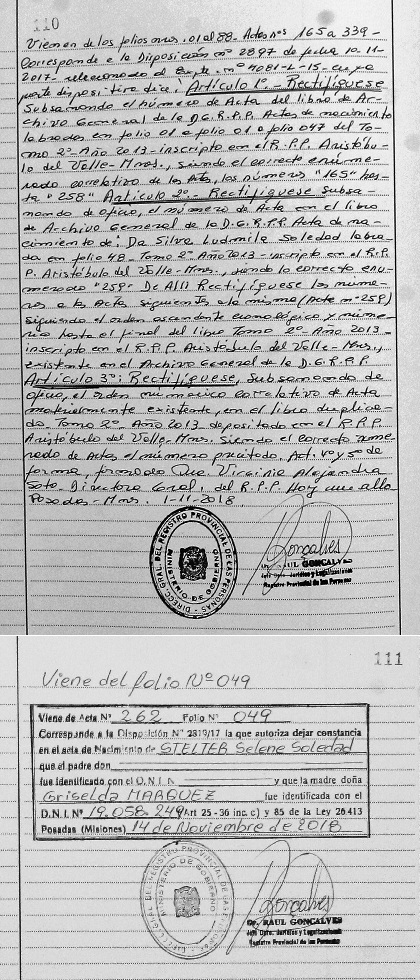 110
Vienen de los folios nros. 01 al 88. Actas nºs 165 a 339 -
Corresponde a la Disposición nº 2897 de fecha 10-11-
2017 relacionado al Expte. nº 4081-L-15- cuya
parte dispositiva dice: Artículo 1º - Rectifíquese
Subsanando el número de Acta del libro de Ar-
chivo General de la D.G.R.P.P. Actas de nacimiento
labradas en folio 01 a folio 047 del To-
mo 2º Año 2013 - inscripto en el R.P.P. Aristóbu-
lo del Valle - Mnes., siendo el correcto enume-
rado correlativo de las Actas, los números "165" has-
ta "258" Artículo 2º - Rectifíquese Subsa-
nando de oficio, el número de Acta en el libro
de Archivo General de la D.G.R.P.P. Acta de na-
cimiento de: Da Silva Ludmila Soledad labra-
da en folio 48 - Tomo 2º Año 2013 - inscripto en el R.P.
P. Aristóbulo del Valle - Mnes., siendo lo correcto enu-
merado "259" De Allí Rectifíquese los núme-
ros a las Actas siguientes a la misma (Acta nº 259)
siguiendo el orden ascendente cronológico y núme-
rico hasta el final del libro Tomo 2º Año 2013 -
inscripto en el R.P.P. Aristóbulo del Valle - Mnes.,
existente en el Archivo General de la D.G.R.P.P.
Artículo 3º: Rectifíquese, Subsanando de
oficio, el orden numérico correlativo de Acta
materialmente existente, en el libro duplica-
do Tomo 2º Año 2013 depositado en el R.P.P.
Aristóbulo del Valle - Mnes. Siendo el correcto nume-
rado de Actas el número precitado. Art. 4º y 5º de
forma firmado Dra. Virginia Alejandra
Soto. Directora Gral. del R.P.P. Hoy
Posadas - Mnes. 1-11-2018
DIREC. GRAL. DEL REGISTRO PROVINCIAL DE LAS PERSONAS
MINISTERIO DE GOBIERNO
Gonçalves
Dr. RAUL GONCALVES
Jefe Dpto. Jurídico y Legalizaciones
Registro Provincial de las Personas
111
Viene del folio Nº 049
Viene de Acta Nº 262 Folio Nº 049
Corresponde a la Disposición Nº 2819/17 la que autoriza dejar constancia
en el acta de Nacimiento de STELTER Selene Soledad
que el padre don
fue identificado con el D.N.I. Nº y que la madre doña
Griselda MARQUEZ fue identificada con
D.N.I. Nº 19.058.249 (Art 25 - 36 inc. c) y 85 de la Ley 26413
Posadas (Misiones) 14 de Noviembre de 2018
DIREC. GRAL. DEL REGISTRO PROVINCIAL DE LAS PERSONAS
MINISTERIO DE GOBIERNO
Gonçalves
Dr. RAUL GONCALVES
Jefe Dpto. Jurídico y Legalizaciones
Registro Provincial de las Personas